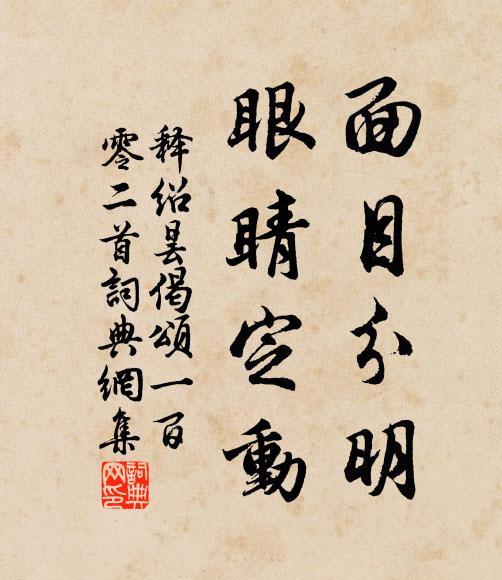 面目分明
眼睛定動
釋紹曇偈頌一百
零二首詞典網集
詞典网印